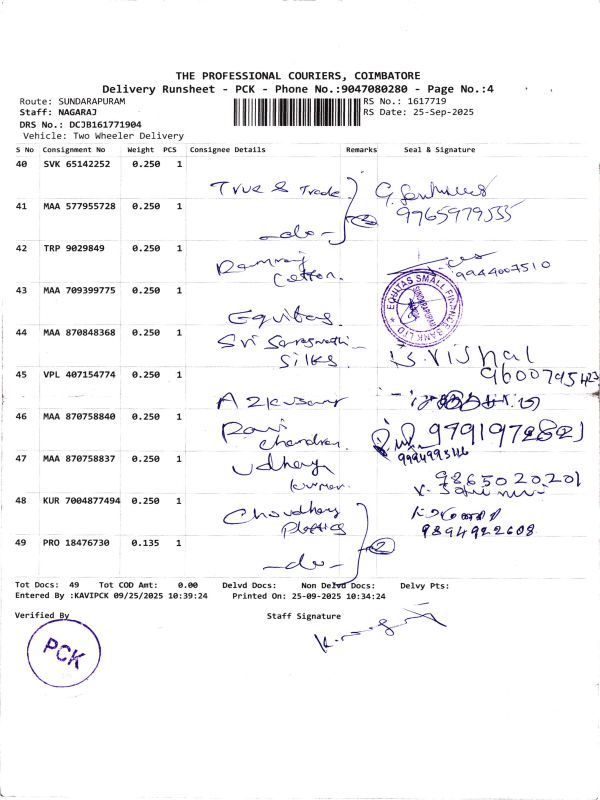 THE PROFESSIONAL COURIERS, COIMBATORE
Delivery Runsheet - PCK - Phone No.:9047080280 - Page No.:4
Route: SUNDARAPURAM
RS No.: 1617719
Staff: NAGARAJ
RS Date: 25-Sep-2025
DRS No.: DCJB161771904
Vehicle: Two Wheeler Delivery
S No Consignment No Weight PCS Consignee Details Remarks Seal & Signature
40 SVK 65142252 0.250 1
True & Trade
9765979535
41 MAA 577955728 0.250 1
-do-
2
42 TRP 9029849 0.250 1
Ramraj
Cotton.
9944007510
43 MAA 709399775 0.250 1
Equitas.
EQUITAS SMALL FINANCE BANK LTD
SUNDARAPURAM
44 MAA 870848368 0.250 1
Sri Saraswathi
Silks
S. Vishal
9600795423
45 VPL 407154774 0.250 1
46 MAA 870758840 0.250 1
Ravi
chandran.
9791972821
47 MAA 870758837 0.250 1
Udhaya
kumar.
9865020201
48 KUR 7004877494 0.250 1
Choudhary
Plastics
9894922608
49 PRO 18476730 0.135 1
-do-
2
Tot Docs: 49 Tot COD Amt: 0.00 Delvd Docs: Non Delvd Docs: Delvy Pts:
Entered By :KAVIPCK 09/25/2025 10:39:24 Printed On: 25-09-2025 10:34:24
Verified By
Staff Signature
PCK